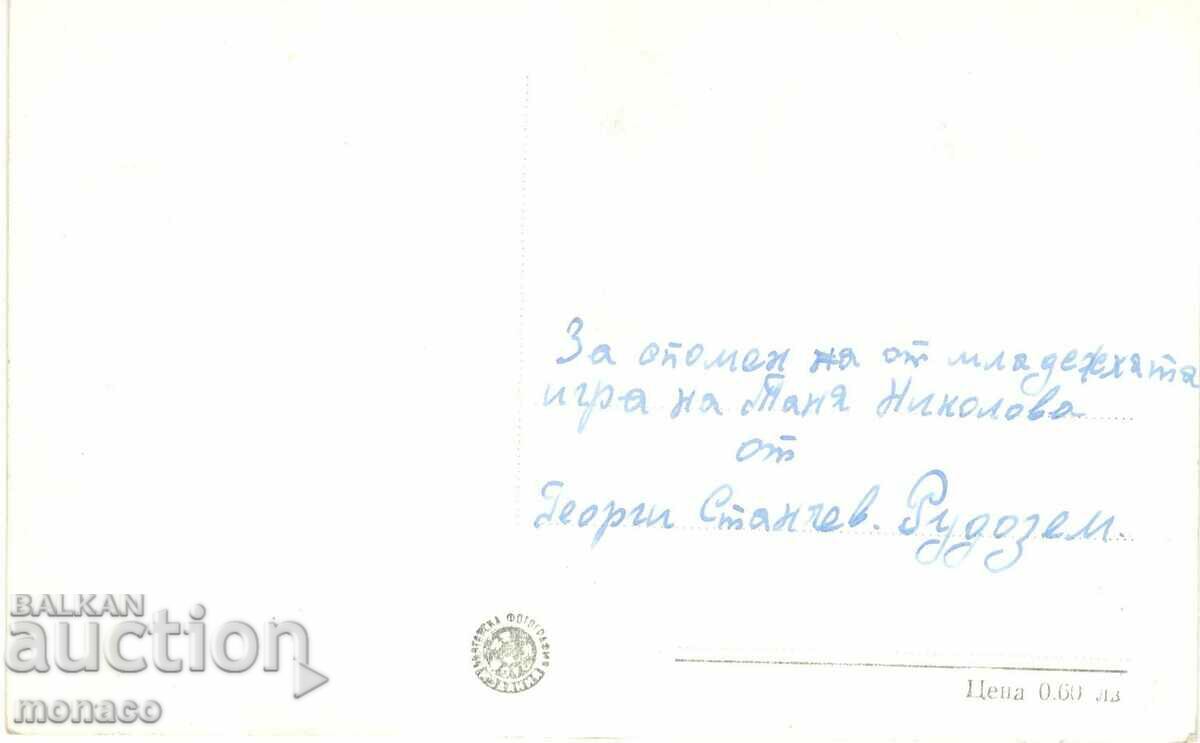 За спомен на от младежката
игра на Таня Николова
от
Георги Станчев. Рудозем.
ФОТОГРАФИЯ
Цена 0.60 лв
BALKAN
auction
monaco